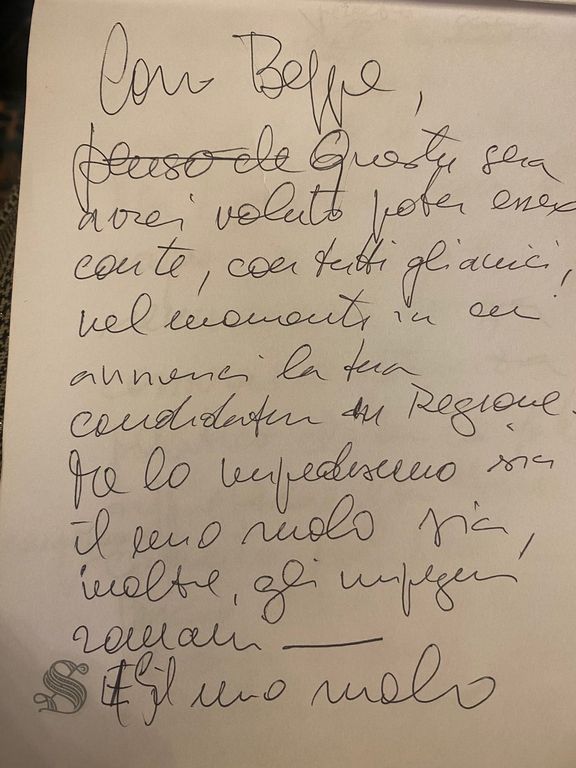 Caro Beppe,
~~penso che~~ Questa sera
avrei voluto poter essere
con te, con tutti gli amici,
nel momento in cui
annunci la tua
candidatura in Regione.
Me lo impediscono sia
il mio ruolo sia,
inoltre, gli impegni
romani —
Il mio ruolo